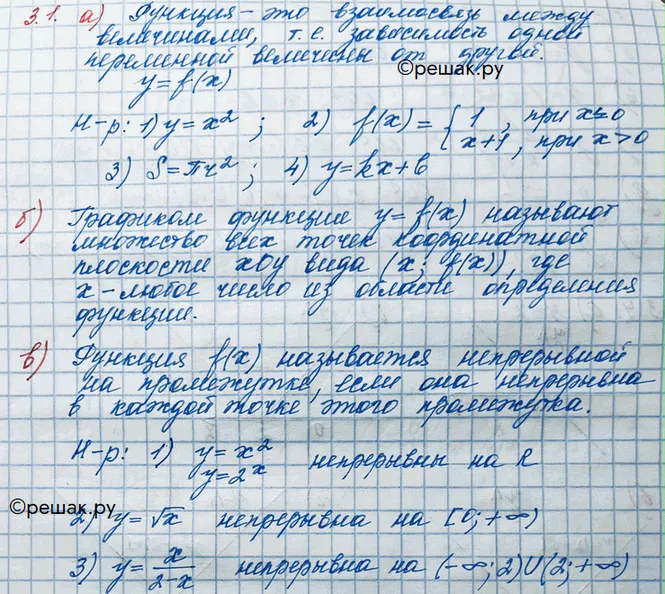 3.1. а) Функция - это взаимосвязь между
величинами, т.е. зависимость одной
переменной величены от другой.
©решак.ру
y = f(x)
Н-р: 1) y = x² ; 2) f(x) = { 1 , при x≤0
x+1 , при x>0
3) S = πr² ; 4) y = kx + b
б) Графиком функции y = f(x) называют
множество всех точек координатной
плоскости xOy вида (x; f(x)), где
x - любое число из области определения
функции.
в) Функция f(x) называется непрерывной
на промежутке, если она непрерывна
в каждой точке этого промежутка.
Н-р: 1) y = x²
y = 2ˣ непрерывны на R
©решак.ру
2) y = √x непрерывна на [0; +∞)
3) y = x/(2-x) непрерывна на (-∞; 2)U(2; +∞)